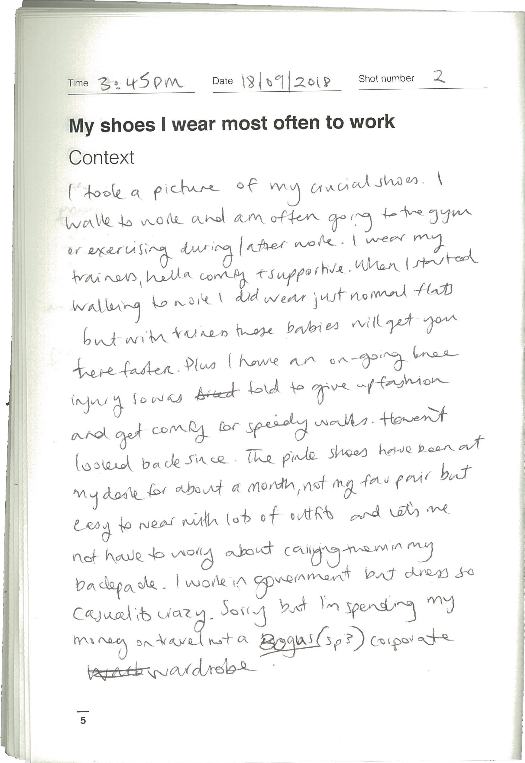 Time 3:45pm Date 18/09/2018 Shot number 2
My shoes I wear most often to work
Context
I took a picture of my crucial shoes. I
walk to work and am often going to the gym
or exercising during/after work. I wear my
trainers, hella comfy + supportive. When I started
walking to work I did wear just normal flats
but with trainers these babies will get you
there faster. Plus I have an on-going knee
injury so was told to give up fashion
and get comfy for speedy walks. Haven't
looked back since. The pink shoes have been at
my desk for about a month, not my fav pair but
easy to wear with lots of outfits and let's me
not have to worry about carrying them in my
backpack. I work in government but dress so
casual it's crazy. Sorry but I'm spending my
money on travel not a Bogus (sp?) corporate
wardrobe.
5